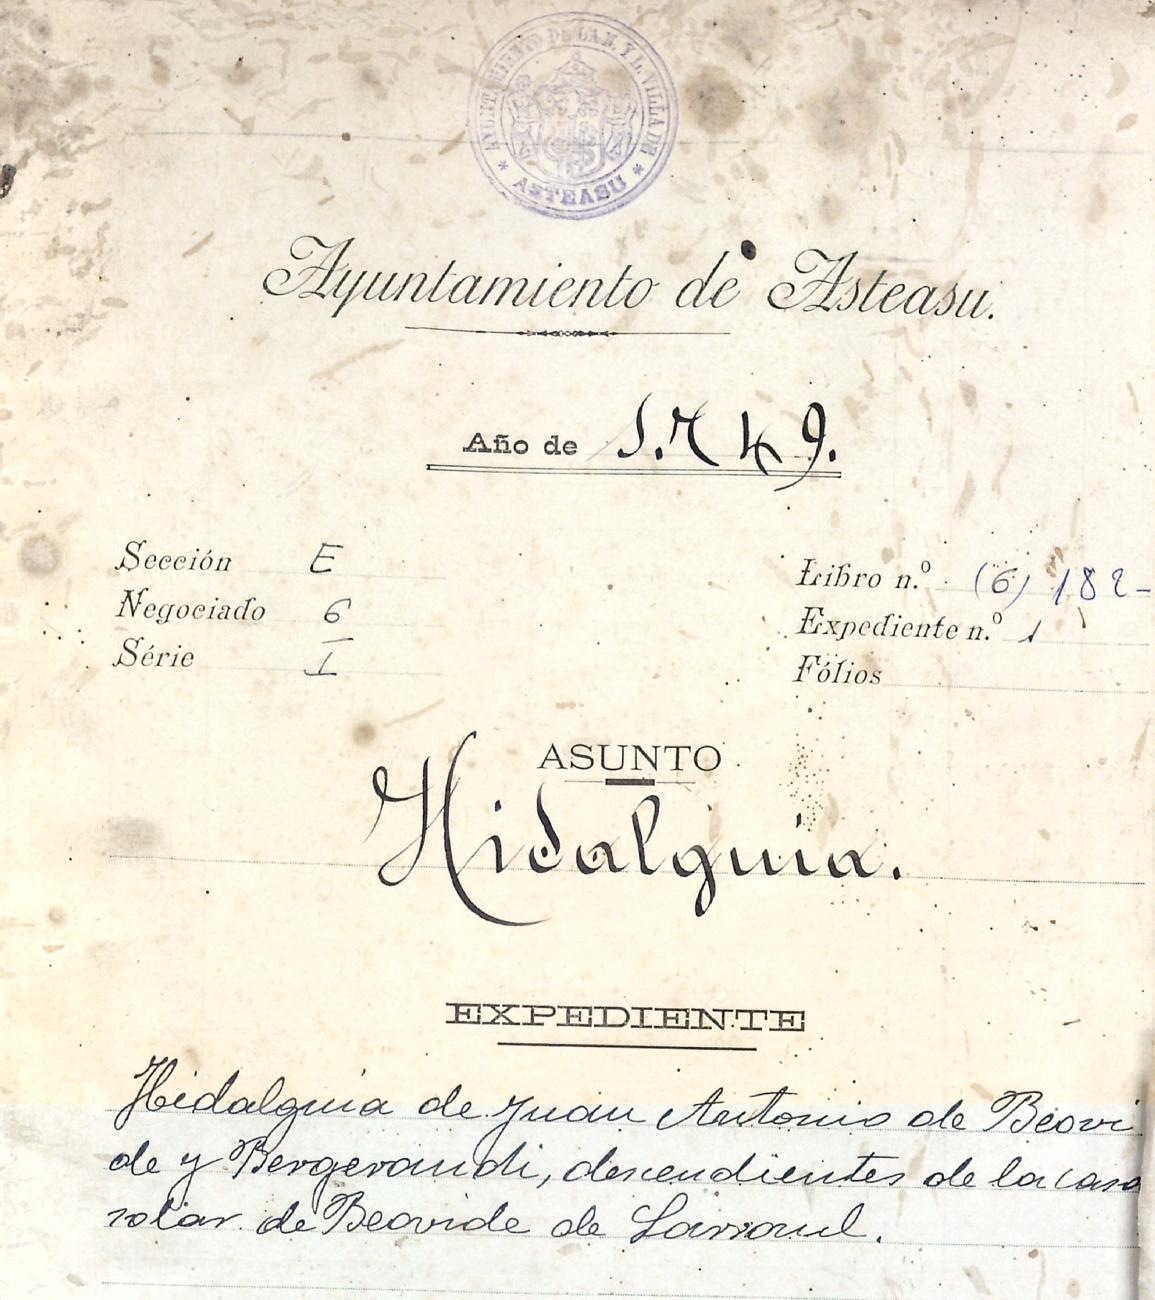 AYUNTAMIENTO DE LA N. Y L. VILLA DE
* ASTEASU *
Ayuntamiento de Asteasu.
Año de 1.749.
Sección E
Negociado 6
Série I
Libro n.º (6) 182-
Expediente n.º 1
Fólios
ASUNTO
Hidalguia.
EXPEDIENTE
Hidalguia de Juan Antonio de Beovi
de y Bergerandi, descendientes de la casa
solar de Beovide de Larraul.